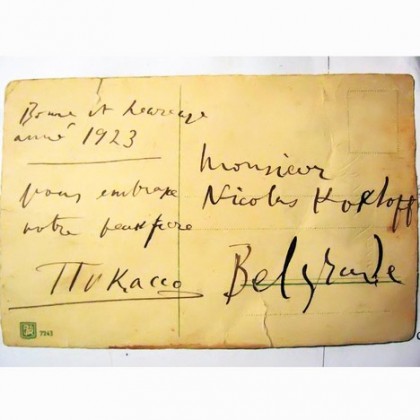 Bonne et heureuse
anné 1923
vous embrasse
votre beaufrere
Пикассо
Monsieur
Nicolas Kokloff
Belgrade